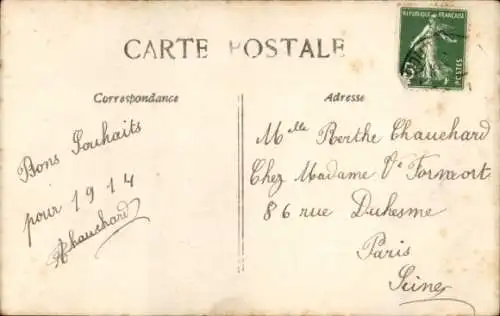 CARTE POSTALE
RÉPUBLIQUE FRANÇAISE
POSTES
Correspondance
Adresse
Bons Souhaits
pour 1914
Chauchard
Mlle Berthe Chauchard
Chez Madame Ve
86 rue Duhesme
Paris
Seine